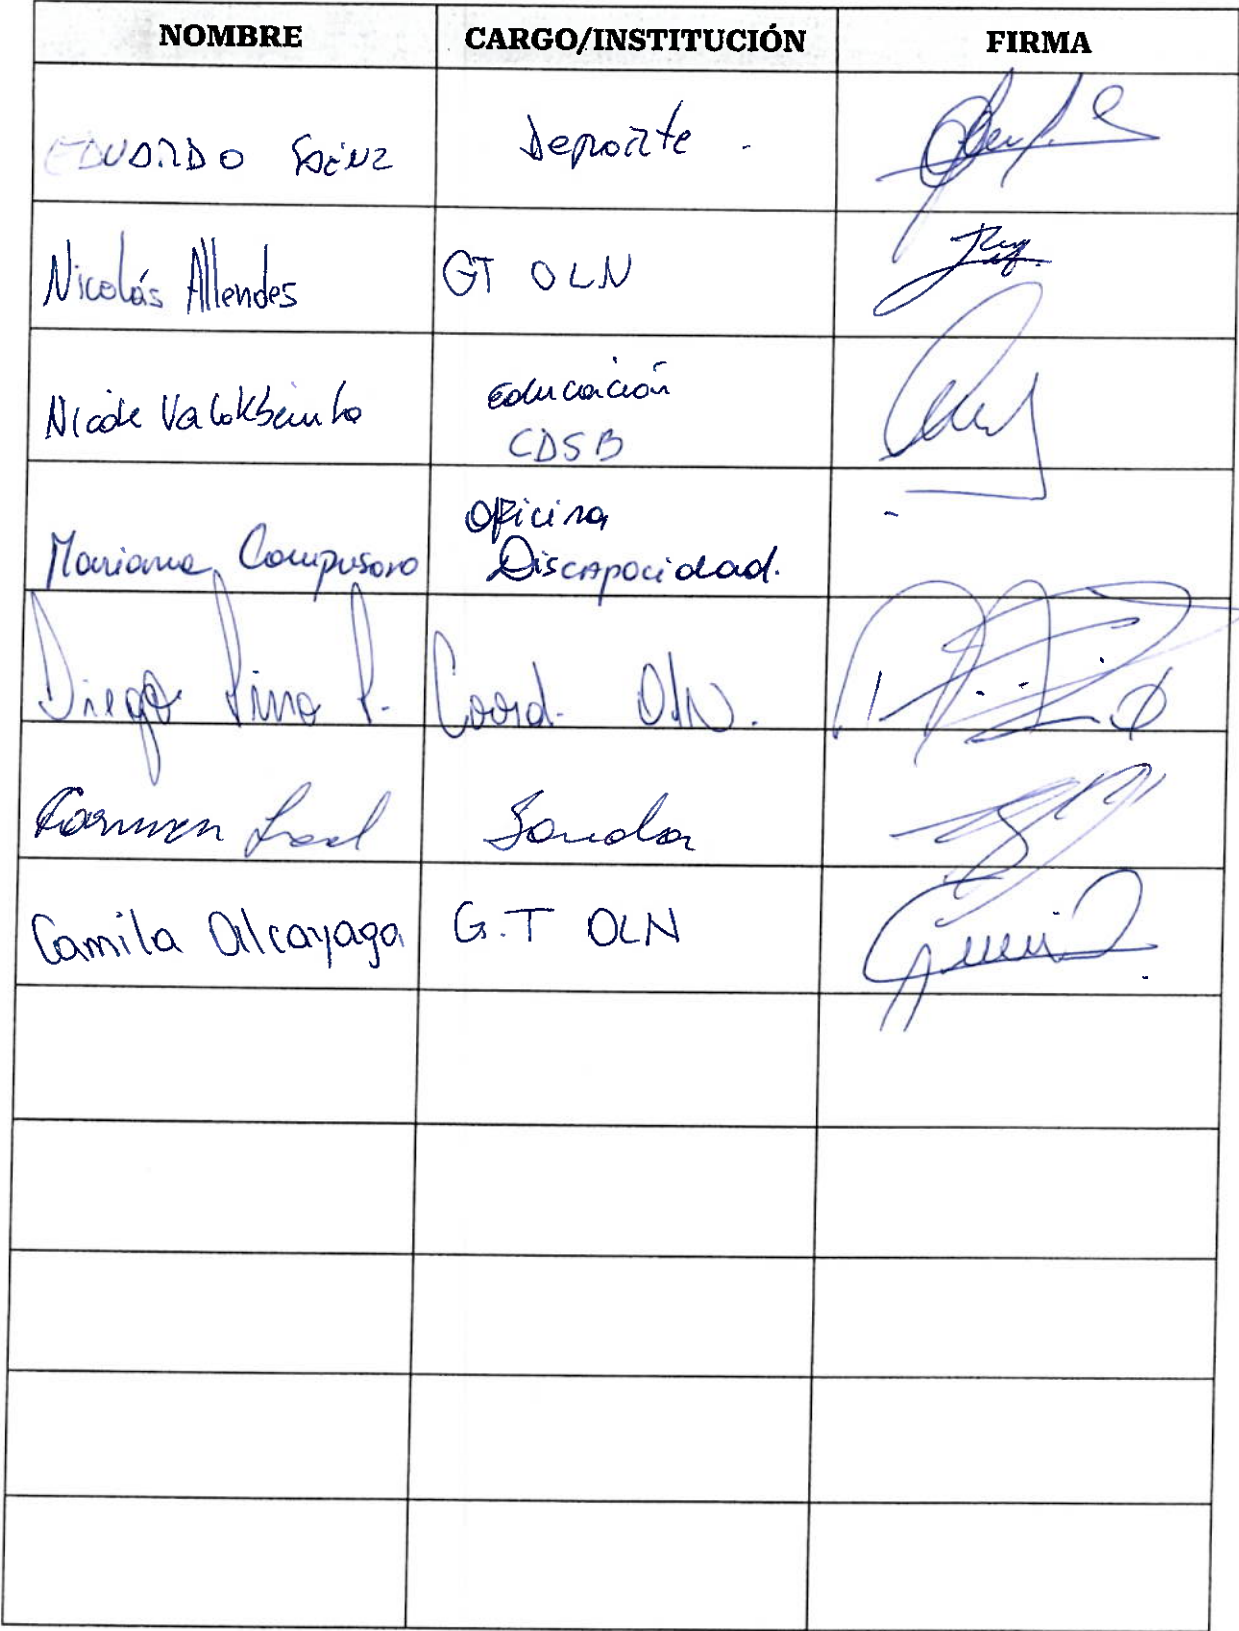 NOMBRE CARGO/INSTITUCIÓN FIRMA
EDUARDO Sáenz Deporte.
Nicolás Allendes GT OLN
Nicole Educación
CDSB
Mariana Oficina
Discapacidad.
Diego Pino P. Coord. OLN.
Carmen Leal
Camila Alcayaga G.T OLN